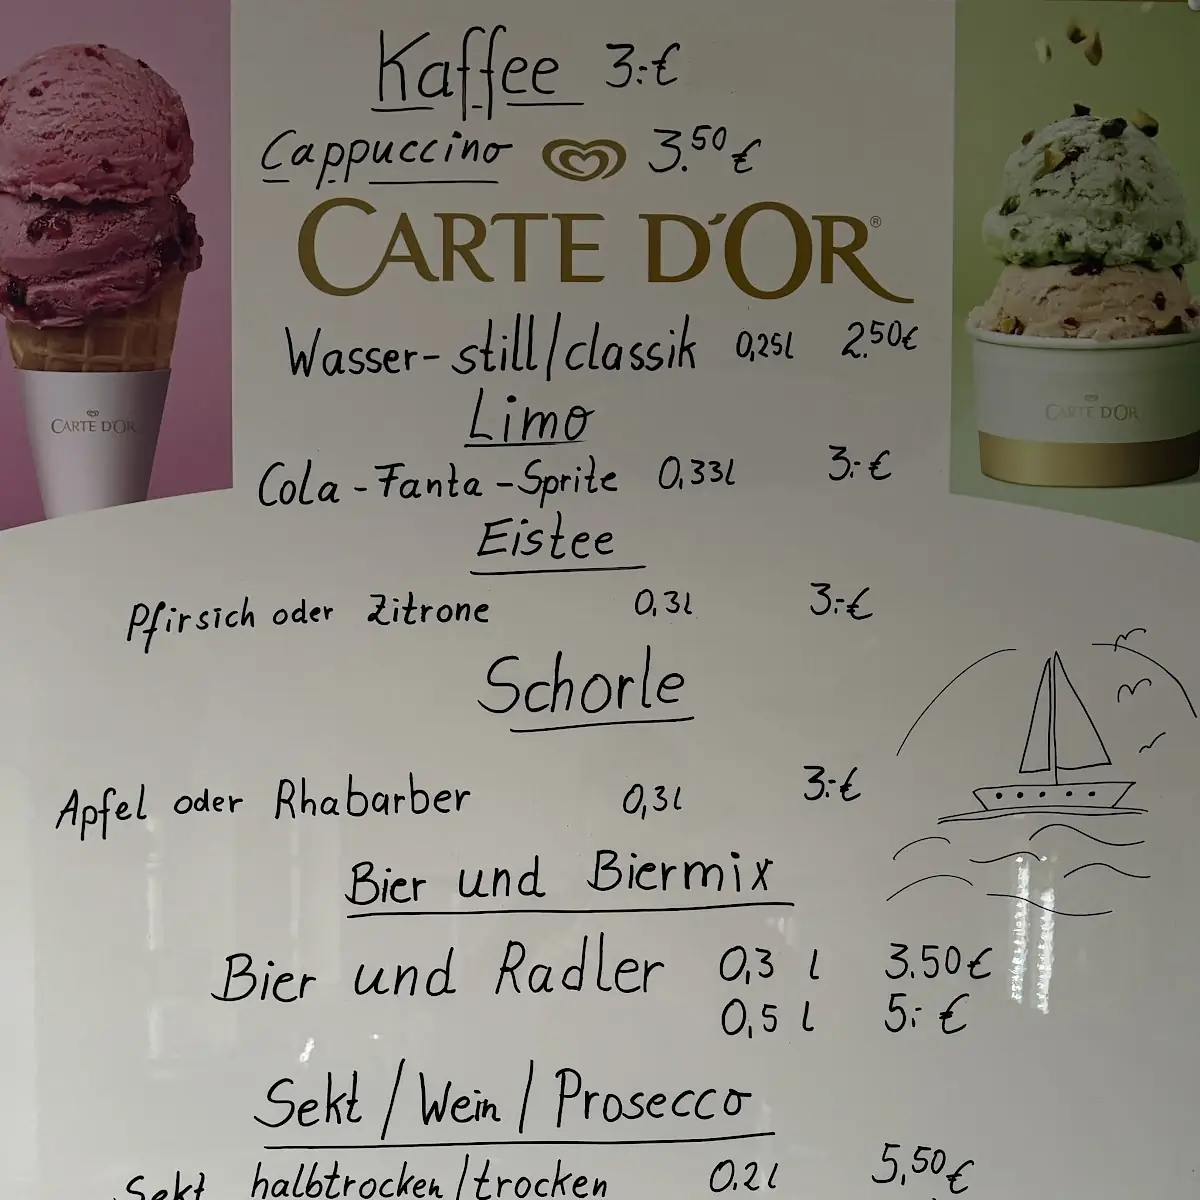 Kaffee 3.-€
Cappuccino 3.50 €
CARTE D'OR®
CARTE D'OR
CARTE D'OR
Wasser-still/classik 0,25l 2.50€
Limo
Cola-Fanta-Sprite 0,33l 3.-€
Eistee
Pfirsich oder Zitrone 0,3l 3.-€
Schorle
Apfel oder Rhabarber 0,3l 3.-€
Bier und Biermix
Bier und Radler 0,3 l 3.50€
0,5 l 5.- €
Sekt / Wein / Prosecco
Sekt halbtrocken/trocken 0.2l 5,50€